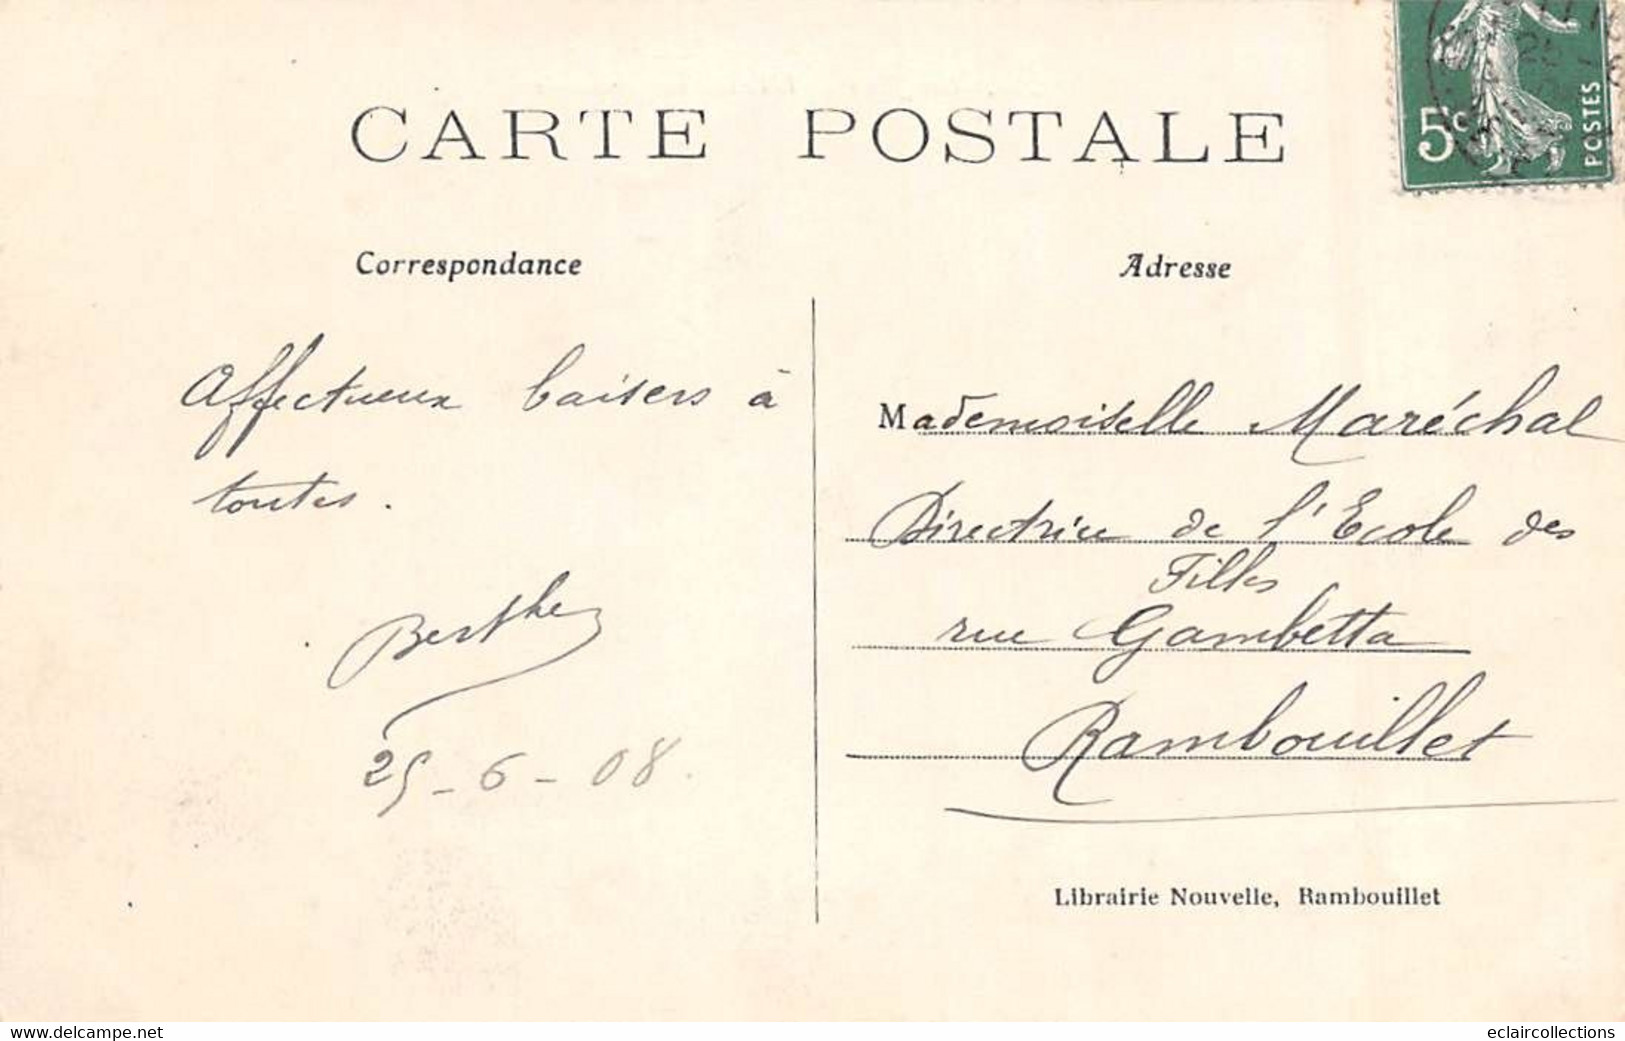 CARTE POSTALE
5c
POSTES
Correspondance
Adresse
Affectueux baisers à
toutes.
Berthe
25-6-08.
Mademoiselle Maréchal
Directrice de l'Ecole des
Filles
rue Gambetta
Rambouillet
Librairie Nouvelle, Rambouillet
www.delcampe.net
eclaircollections